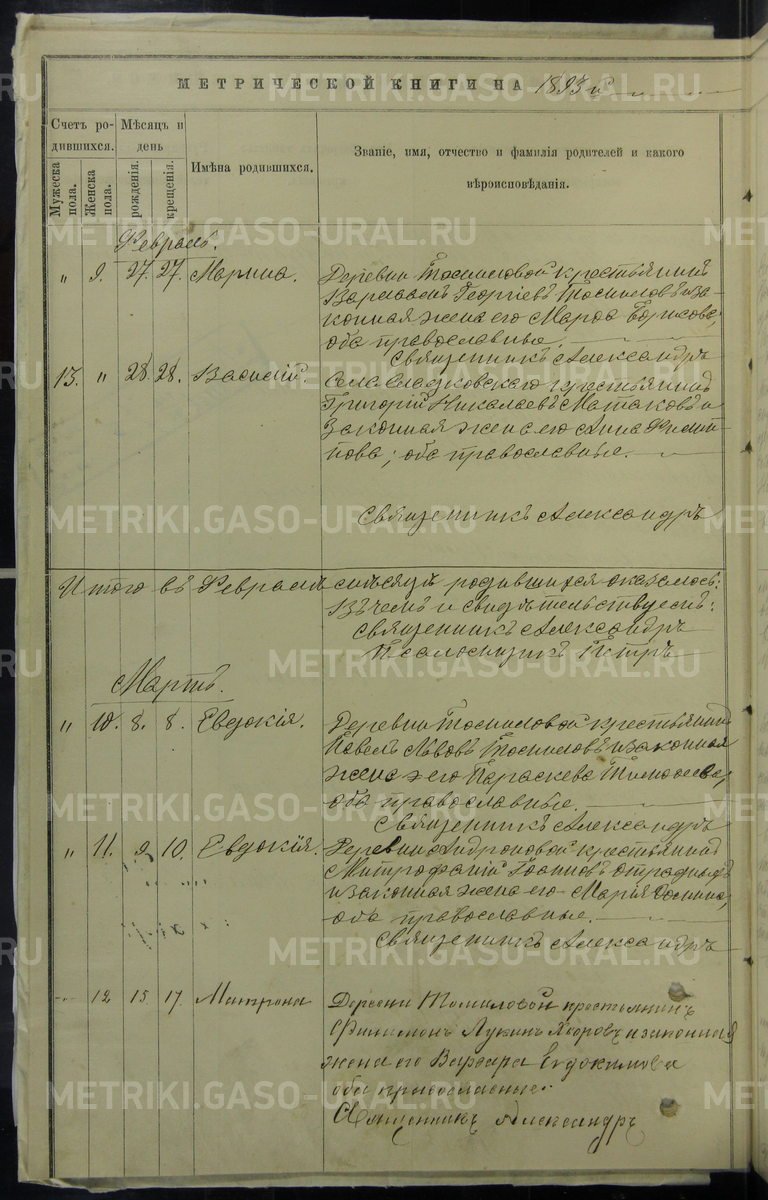 МЕТРИЧЕСКОЙ КНИГИ НА 1893 г
Счетъ ро-
дившихся.
Мѣсяцъ и
день
Мужеска
пола.
Женска
пола.
рожденія.
крещенія.
Имѣна родившихся.
Званіе, имя, отчество и фамилія родителей и какого
вѣроисповѣданія.
Февраль.
" 9. 27. 27. Марина.
Деревни крестьянинъ
Варлаамъ Георгіевъ и за-
конная жена его Марѳа Борисова,
оба православные.
Священникъ Александръ
13. " 28. 28. Василій.
Села Сладковскаго крестьянинъ
Григорій Николаевъ и
законная жена его Анна Филип-
пова; оба православные.
Священникъ Александръ
Итого въ Февралѣ мѣсяцѣ родившихся оказалось:
Въ чемъ и свидѣтельствуемъ:
Священникъ Александръ
Псаломщикъ Петръ
Мартъ.
" 10. 8. 8. Евдокія.
Деревни крестьянинъ
Павелъ Львовъ и законная
жена его Параскева Тимоѳеева,
оба православные.
Священникъ Александръ
" 11. 9. 10. Евдокія.
Деревни Андроновой крестьянинъ
Митрофаній Іоанновъ
и законная жена его Марія Ѳомина,
оба православные.
Священникъ Александръ
" 12 15 17. Матрона
Деревни Томиловой крестьянинъ
Филимонъ Лукинъ и законная
жена его Варвара Евдокимова
оба православные.
Священникъ Александръ
METRIKI.GASO-URAL.RU